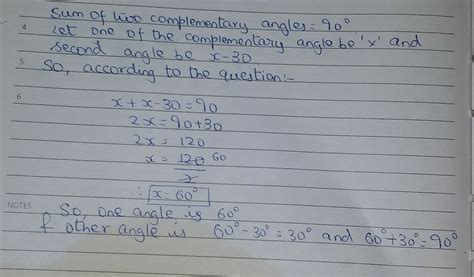 Sum of two complementary angles = 90°
4 Let one of the complementary angle be 'x' and
second angle be x-30
5
So, according to the question:-
6
x + x - 30 = 90
2x = 90 + 30
2x = 120
x = 120 60
2
∴ x = 60°
NOTES
So, one angle is 60°
& other angle is 60° - 30° = 30° and 60° + 30° = 90°